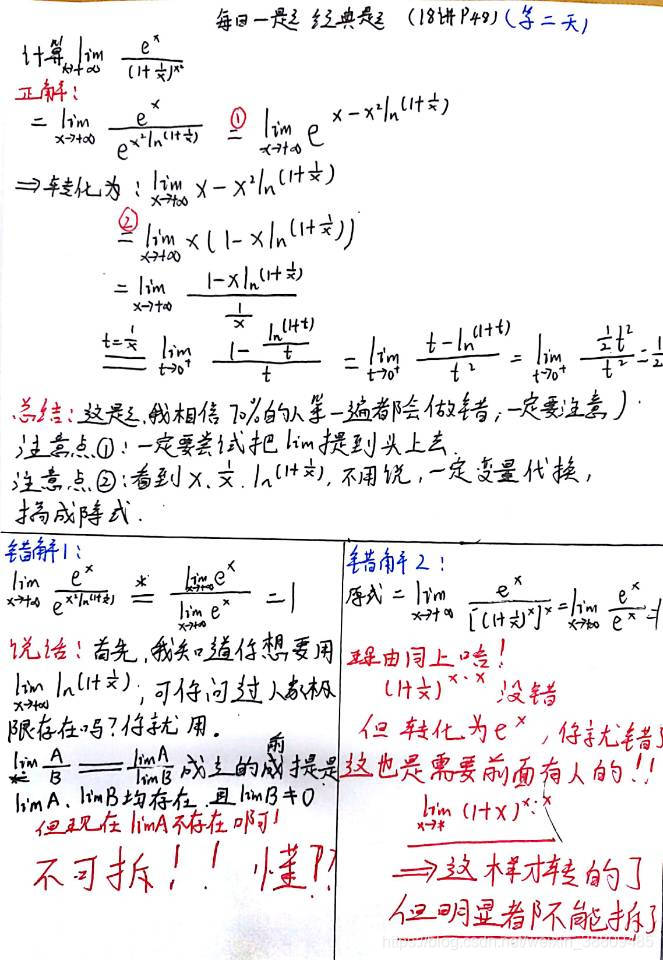 每日一题 经典题 (18讲P48) (第二天)
计算 lim x→+∞ e^x / (1+1/x)^{x²}
正解:
= lim x→+∞ e^x / e^{x²ln(1+1/x)} ①= lim x→+∞ e^{x-x²ln(1+1/x)}
⇒转化为: lim x→+∞ x-x²ln(1+1/x)
②= lim x→+∞ x(1-xln(1+1/x))
= lim x→+∞ (1-xln(1+1/x)) / (1/x)
t=1/x = lim t→0⁺ (1-ln(1+t)/t) / t = lim t→0⁺ (t-ln(1+t)) / t² = lim t→0⁺ (1/2 t²) / t² = 1/2
总结: 这题,我相信70%的人第一遍都会做错,一定要注意)
注意点①: 一定要尝试把lim提到头上去.
注意点②: 看到x、1/x、ln(1+1/x),不用说,一定变量代换,
搞成除式.
错解1:
lim x→+∞ e^x / e^{x²ln(1+1/x)} *= lim x→+∞ e^x / lim x→+∞ e^x = 1
说话: 首先,我知道你想要用
lim x→+∞ ln(1+1/x), 可你问过人家极
限存在吗?你就用。
lim A/B = limA/limB 成立的前提是
limA、limB均存在,且limB≠0
但现在limA不存在啊!
不可拆!! 懂??
错解2:
原式= lim x→+∞ e^x / [(1+1/x)^x]^x = lim x→+∞ e^x / e^x = 1
理由同上哈!
(1+1/x)^{x·x} 没错
但转化为e^x,你就错了
这也是需要前面有人的!!
lim x→* (1+x)^{x·x}
⇒这样才转的了
但明显都不能拆了